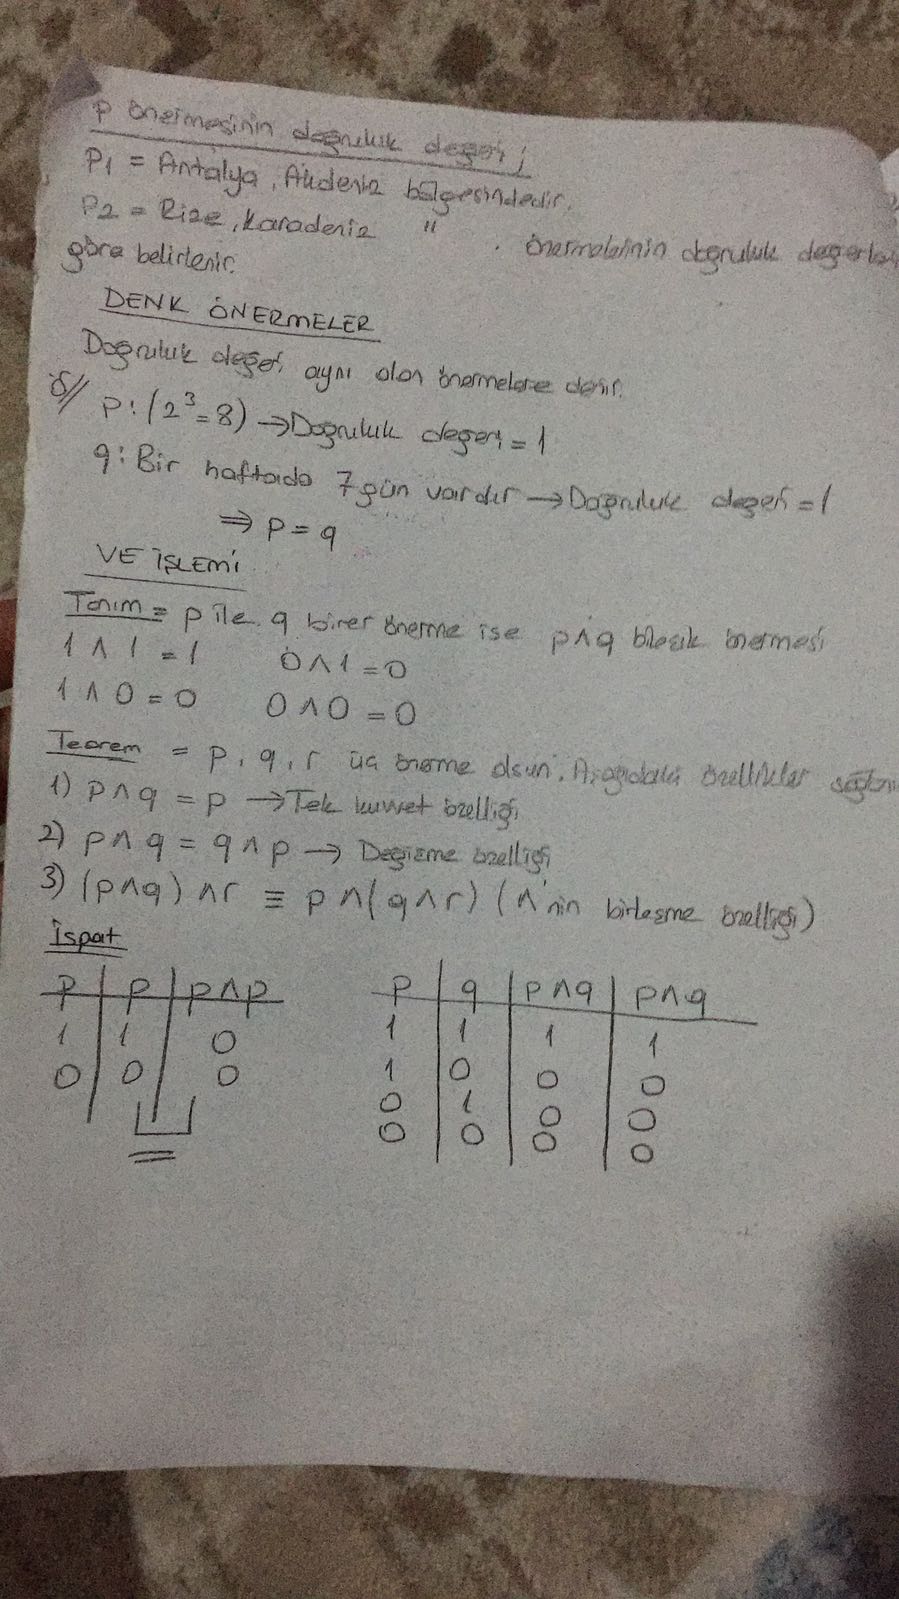 p önermesinin doğruluk değeri;
P1 = Antalya, Akdeniz bölgesindedir.
P2 = Rize, Karadeniz " . önermelerinin doğruluk değerleri
göre belirlenir.
DENK ÖNERMELER
Doğruluk değeri aynı olan önermelere denir.
Ö//
p: (2³=8) → Doğruluk değeri = 1
q: Bir haftada 7 gün vardır → Doğruluk değeri = 1
⇒ p = q
VE İŞLEMİ
Tanım = p ile q birer önerme ise p∧q bileşik önermesi
1 ∧ 1 = 1 0 ∧ 1 = 0
1 ∧ 0 = 0 0 ∧ 0 = 0
Teorem = p, q, r üç önerme olsun. Aşağıdaki özellikler
1) p∧q = p → Tek kuvvet özelliği
2) p∧q = q∧p → Değişme özelliği
3) (p∧q) ∧r ≡ p∧(q∧r) (∧'nin birleşme özelliği)
İspat
p p p∧p
1 1 0
0 0 0
p q p∧q p∧q
1 1 1 1
1 0 0 0
0 1 0 0
0 0 0 0